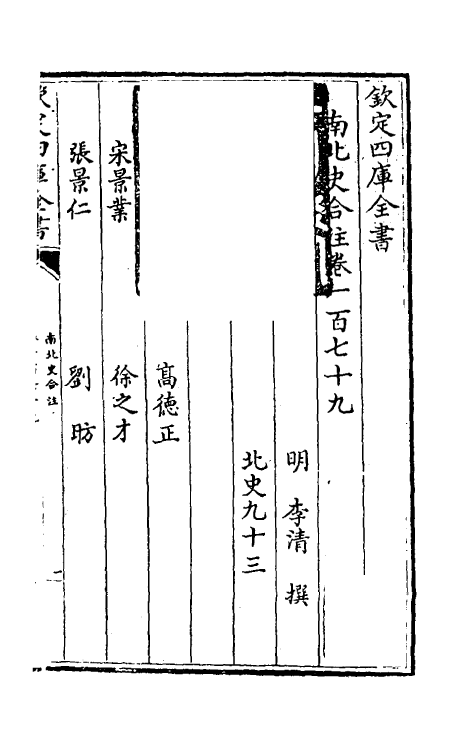 欽定四庫全書
南北史合注卷一百七十九
明 李清 撰
北史九十三
高德正
宋景業 徐之才
張景仁 劉昉
欽定四庫全書
南北史合注